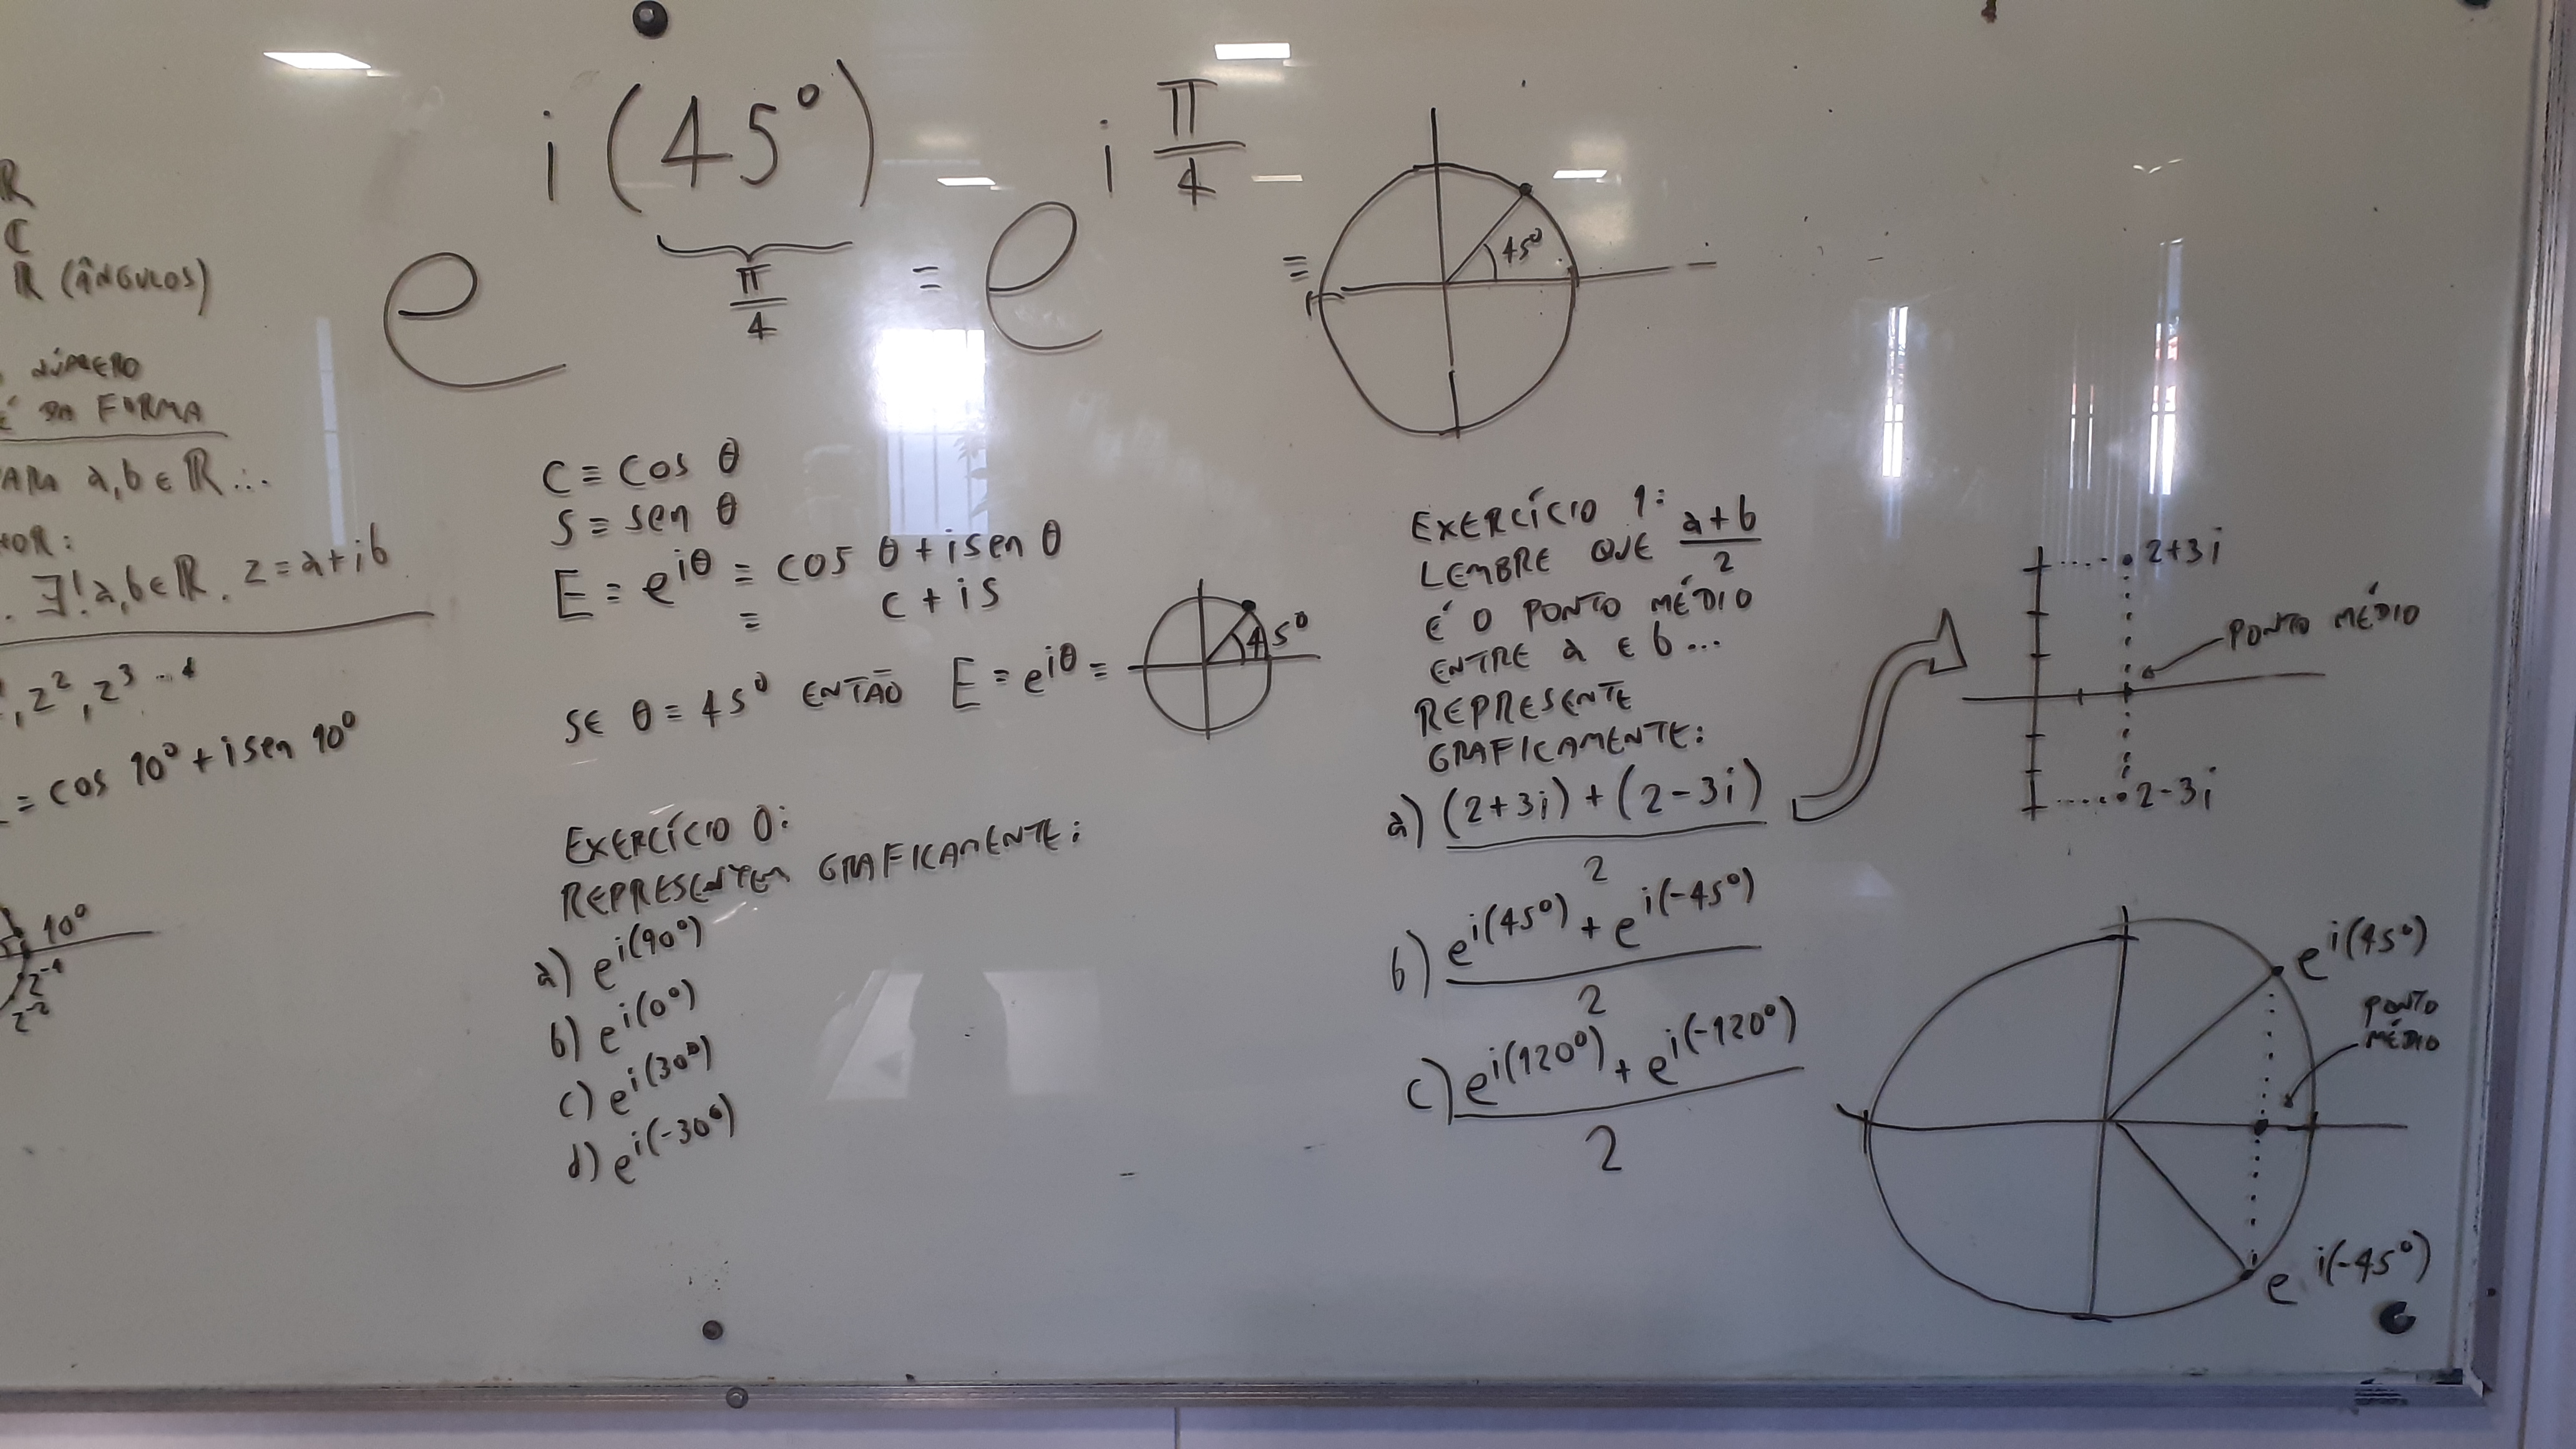 R
C
R (ÂNGULOS)
NÚMERO
É DA FORMA
PARA a,b ∈ R...
∃!a,b∈R. z=a+ib
, z², z³ ...
= cos 10° + i sen 10°
10°
z⁻¹
z⁻²
e^{i(45°)} = e^{i π/4} =
π/4
45°
C = cos θ
S = sen θ
E = e^{iθ} = cos θ + i sen θ
= c + is
SE θ = 45° ENTÃO E = e^{iθ} =
45°
EXERCÍCIO 0:
REPRESENTEM GRAFICAMENTE:
a) e^{i(90°)}
b) e^{i(0°)}
c) e^{i(30°)}
d) e^{i(-30°)}
EXERCÍCIO 1:
LEMBRE QUE (a+b)/2
É O PONTO MÉDIO
ENTRE a E b...
REPRESENTE
GRAFICAMENTE:
a) ((2+3i) + (2-3i))/2
b) (e^{i(45°)} + e^{i(-45°)})/2
c) (e^{i(120°)} + e^{i(-120°)})/2
2+3i
PONTO MÉDIO
2-3i
e^{i(45°)}
PONTO
MÉDIO
e^{i(-45°)}